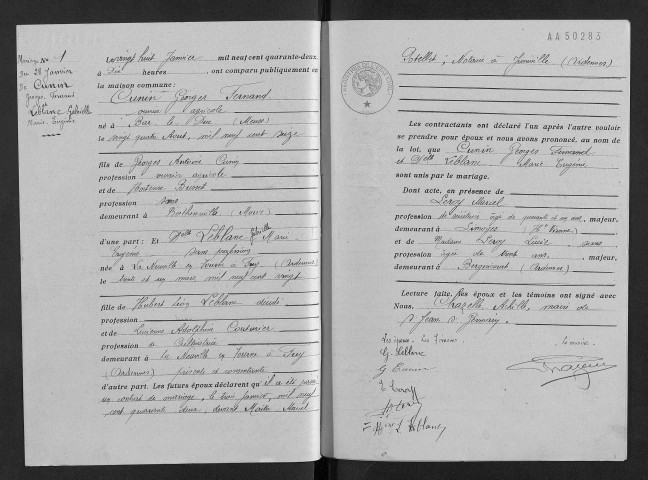 Mariage No 1
Du 28 Janvier
De
Cunin
Georges Fernand
et
Leblanc Gabrielle
Marie Eugénie
Le vingt huit Janvier mil neuf cent quarante-deux
à Dix heures , ont comparu publiquement en
la maison commune :
Cunin Georges Fernand
ouvrier agricole
né à Bar le Duc (Meuse)
le vingt quatre Aout, mil neuf cent seize
fils de Georges Antoine Cunin
profession ouvrier agricole
et de Hortense
profession sans
demeurant à (Marne)
d'une part : Et Delle Leblanc Gabrielle Marie
Eugénie sans profession
née à La Neuville en Tourne à Fuy (Ardennes)
le trente et un mars mil neuf cent vingt
fille de Hubert Léon Leblanc décédé
profession
et de Lucienne Adolphine
profession
demeurant à la Neuville en Tourne à Fuy
(Ardennes) présente et consentante
d'autre part. Les futurs époux déclarent qu'il a été passé
un contrat de mariage, le trois janvier, mil neuf
cent quarante deux, devant Maître Marcel
AA 50283
Notaire à Juniville (Ardennes)
Les contractants ont déclaré l'un après l'autre vouloir
se prendre pour époux et nous avons prononcé, au nom de
la loi, que Cunin Georges Fernand
et Delle Leblanc Marie Eugénie
sont unis par le mariage.
Dont acte, en présence de
Leroy Marcel
profession âgé de quarante et un ans, majeur,
demeurant à Limoges (Hte Vienne)
et de Madame Leroy sans
profession âgée de trente ans , majeur,
demeurant à Bergnicourt (Ardennes)
Lecture faite, les époux et les témoins ont signé avec
Nous, Achille, maire de
Les époux. Les Témoins. Le maire.
G. Leblanc
G Cunin
Leroy
Leblanc